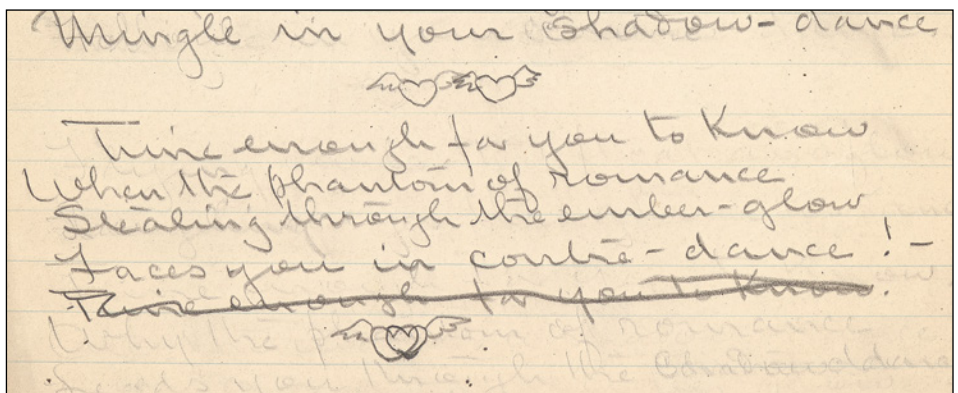 Mingle in your shadow-dance
Time enough for you to know
When the phantom of romance
Stealing through the ember-glow
Faces you in contre-dance! -
Time enough for you to know.
Why the phantom of romance
you through the